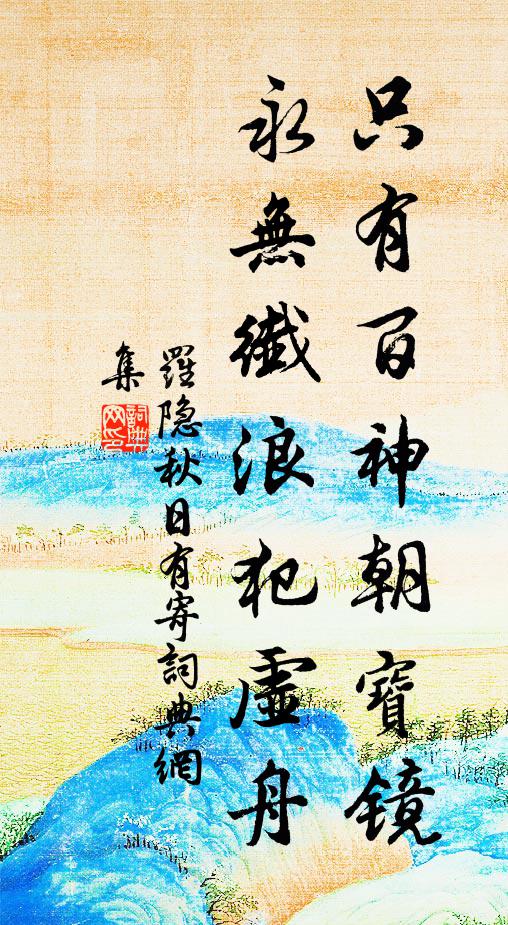 只有百神朝寶鏡
永無纖浪犯虛舟
羅隐秋日有寄詞典網
集
詞典
网印